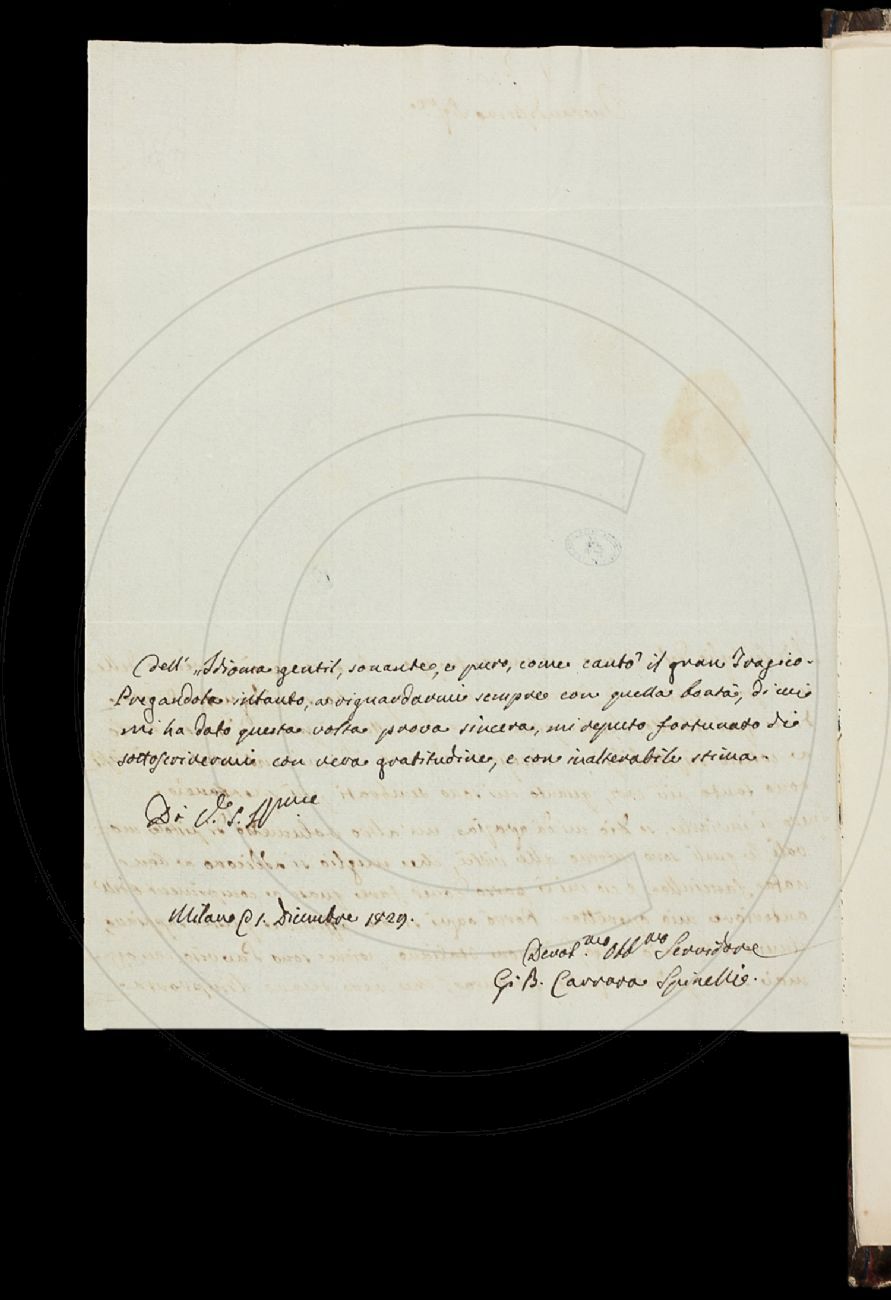 Dell' „Idioma gentil, sonante, e puro, come cantò il gran Tragico.
Pregandola intanto, a riguardarmi sempre con quella bontà, di cui
mi ha dato questa volta prova sincera, mi reputo fortunato di
sottoscrivermi con vera gratitudine, e con inalterabile stima.
Di
Milano 1. Dicembre 1829.
Devot.mo Obb.mo Servidore
G. B. Carrara Spinelli.